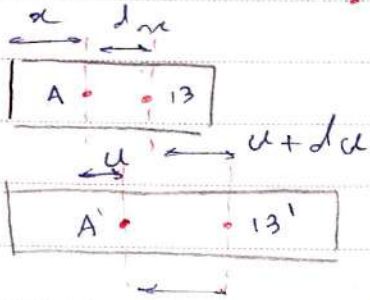 x dx
A B
u u + du
A' B'